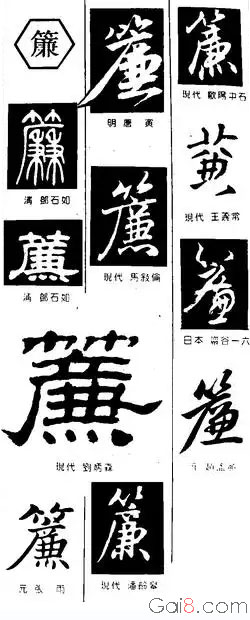 簾
簾
清 鄧石如
簾
清 鄧石如
簾
明 唐寅
簾
現代 馬敘倫
簾
現代 歐陽中石
簾
現代 王蘧常
簾
日本 巖谷一六
簾
簾
現代 劉炳森
簾
元 張雨
簾
現代 潘齡皋
Gai8.com